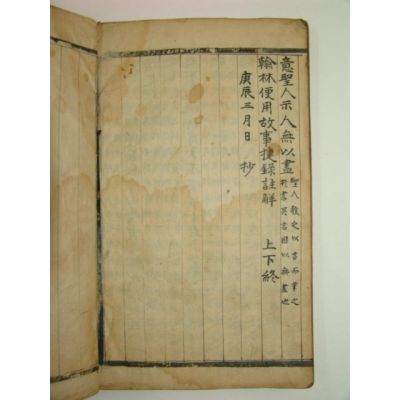 意聖人示人無以盡 聖人教之以書而筆之
於書其言固以無盡也
翰林便用故事捷錄註解 上下終
庚辰三月日 抄